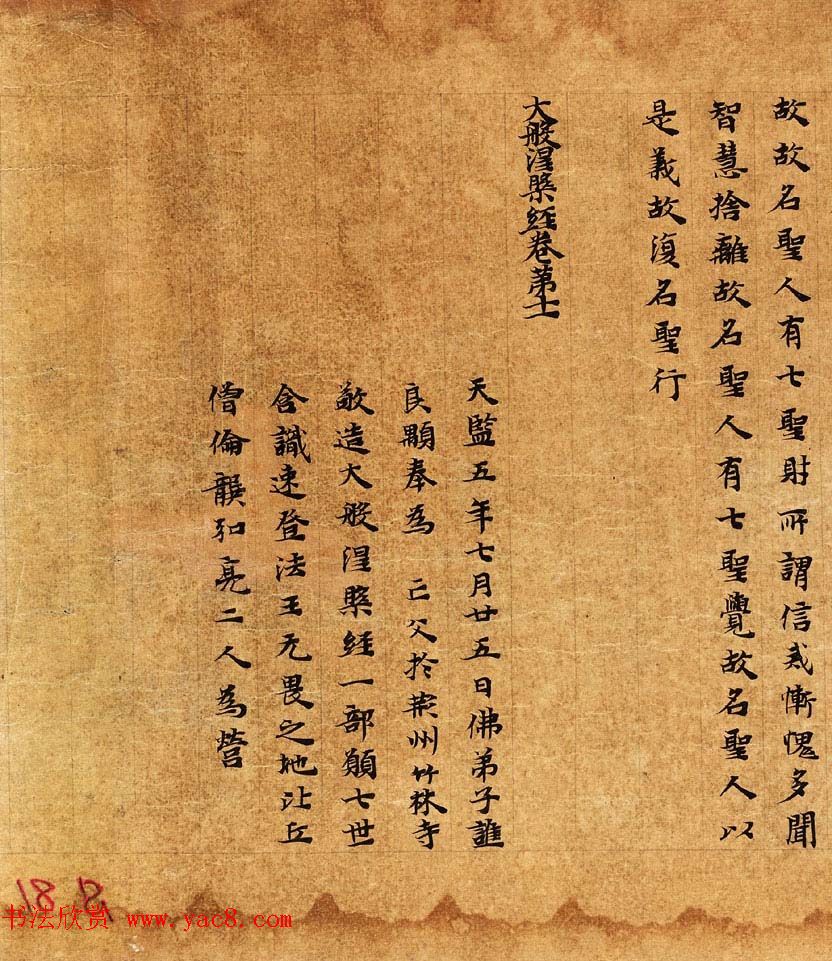 故故名聖人有七聖財所謂信戒慚愧多聞
智慧捨離故名聖人有七聖覺故名聖人以
是義故復名聖行
大般涅槃經卷第十一
天監五年七月廿五日佛弟子譙
良顒奉為 亡父於荊州竹林寺
敬造大般涅槃經一部願七世
含識速登法王无畏之地比丘
僧倫龔弘亮二人為營
书法欣赏 www.yac8.com